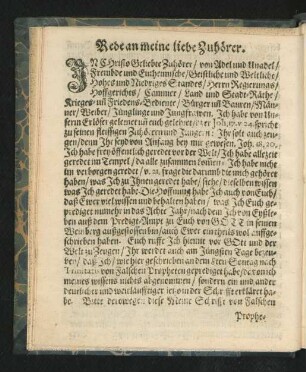 Rede an meine liebe Zuhörer.
IN Christo Geliebte Zuhörer / von Adel und Unadel /
Frembde und Einheimische / Geistliche und Weltliche /
Hohes und Niedriges Standes / Herrn Regierungs /
Hoffgerichts / Cammer / Land und Stadt-Räthe /
Krieges- uñ Friedens-Bediente / Bürger uñ Bauren / Män-
ner / Weiber / Jünglinge und Jungfrawen. Ich habe von Un-
serm Erlöser gelernet
zu seinen fleissigen Zuhörern und Jüngern: Ihr solt auch zeu-
gen / denn Ihr seyd von Anfang bey mir gewesen. Joh. 18, 20.
Ich habe frey öffentlich geredet vor der Welt / Ich habe allezeit
geredet im Tempel / da alle zusammen kom̃en / Ich habe nicht
im verborgen geredet / v. 21. frage die darumb die mich gehöret
haben / was Ich zu Ihnen geredet habe / siehe / dieselben wissen
was Ich geredet habe. Die Hoffnung habe Ich auch von Euch /
daß Ewer viel wissen und behalten haben / was Ich Euch ge-
prediget numehr in das Jahr / nach dem Ich von
auß dem Predig-Ampt zu Euch von GOTT in seinen
Weinberg außgestossen bin / auch Ewer etliche es wol auffge-
schrieben haben. Euch ruffe Ich hiemit vor GOtt und der
Welt zu Zeugen / Ihr werdet auch am Jüngsten Tage bezeu-
gen / daß Ich / wie hier geschrieben an dem 8ten Sontag nach
Trinitatis von Falschen Propheten geprediget habe /
meines wissens nichts abgenommen / sondern ein und ander
deutlicher und weitläufftiger in der Schrifft erkläret ha-
be. Bitte derowegen diese Meine Schrifft von Falschen
Prophe-